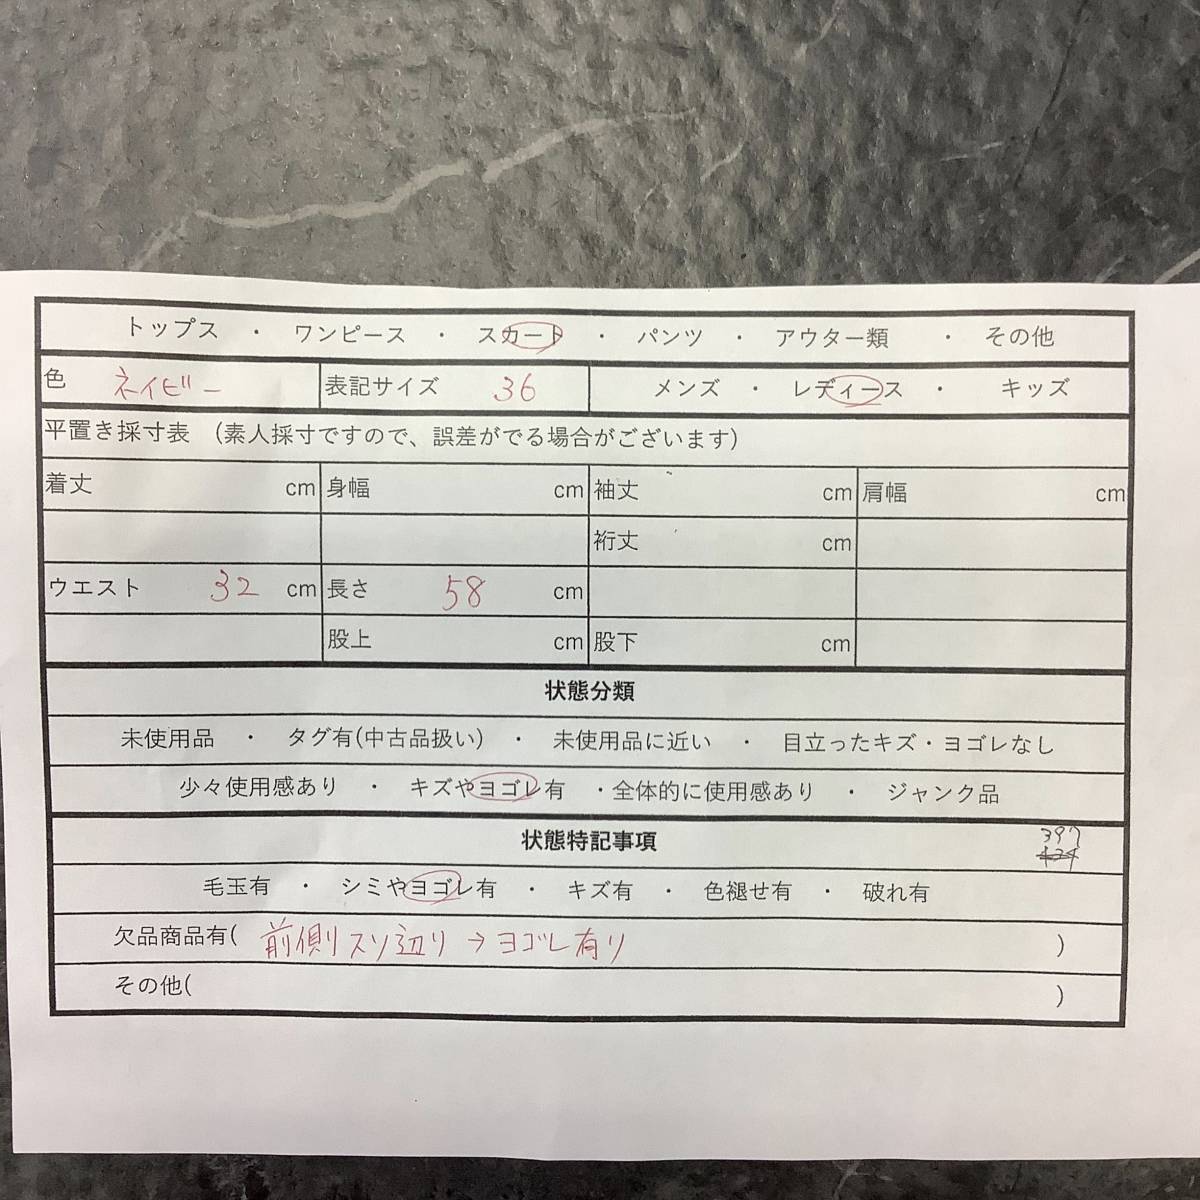 トップス ・ ワンピース ・ スカート ・ パンツ ・ アウター類 ・ その他
色 ネイビー 表記サイズ 36 メンズ ・ レディース ・ キッズ
平置き採寸表 (素人採寸ですので、誤差がでる場合がございます)
着丈 cm 身幅 cm 袖丈 cm 肩幅 cm
裄丈 cm
ウエスト 32 cm 長さ 58 cm
股上 cm 股下 cm
状態分類
未使用品 ・ タグ有(中古品扱い) ・ 未使用品に近い ・ 目立ったキズ・ヨゴレなし
少々使用感あり ・ キズやヨゴレ有 ・全体的に使用感あり ・ ジャンク品
状態特記事項 397
毛玉有 ・ シミやヨゴレ有 ・ キズ有 ・ 色褪せ有 ・ 破れ有
欠品商品有( 前側スソ辺り→ヨゴレ有り )
その他( )